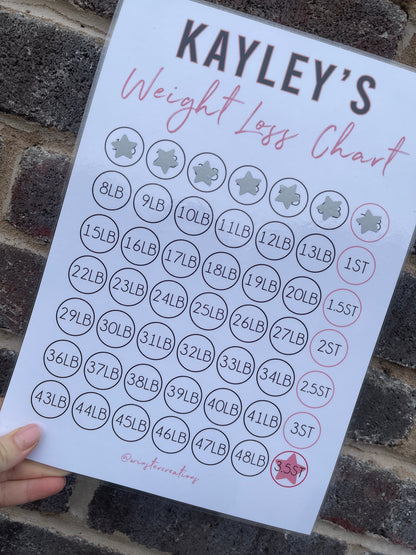 KAYLEY'S
Weight Loss Chart
8LB 9LB 10LB 11LB 12LB 13LB 1ST
15LB 16LB 17LB 18LB 19LB 20LB 1.5ST
22LB 23LB 24LB 25LB 26LB 27LB 2ST
29LB 30LB 31LB 32LB 33LB 34LB 2.5ST
36LB 37LB 38LB 39LB 40LB 41LB 3ST
43LB 44LB 45LB 46LB 47LB 48LB 3.5ST